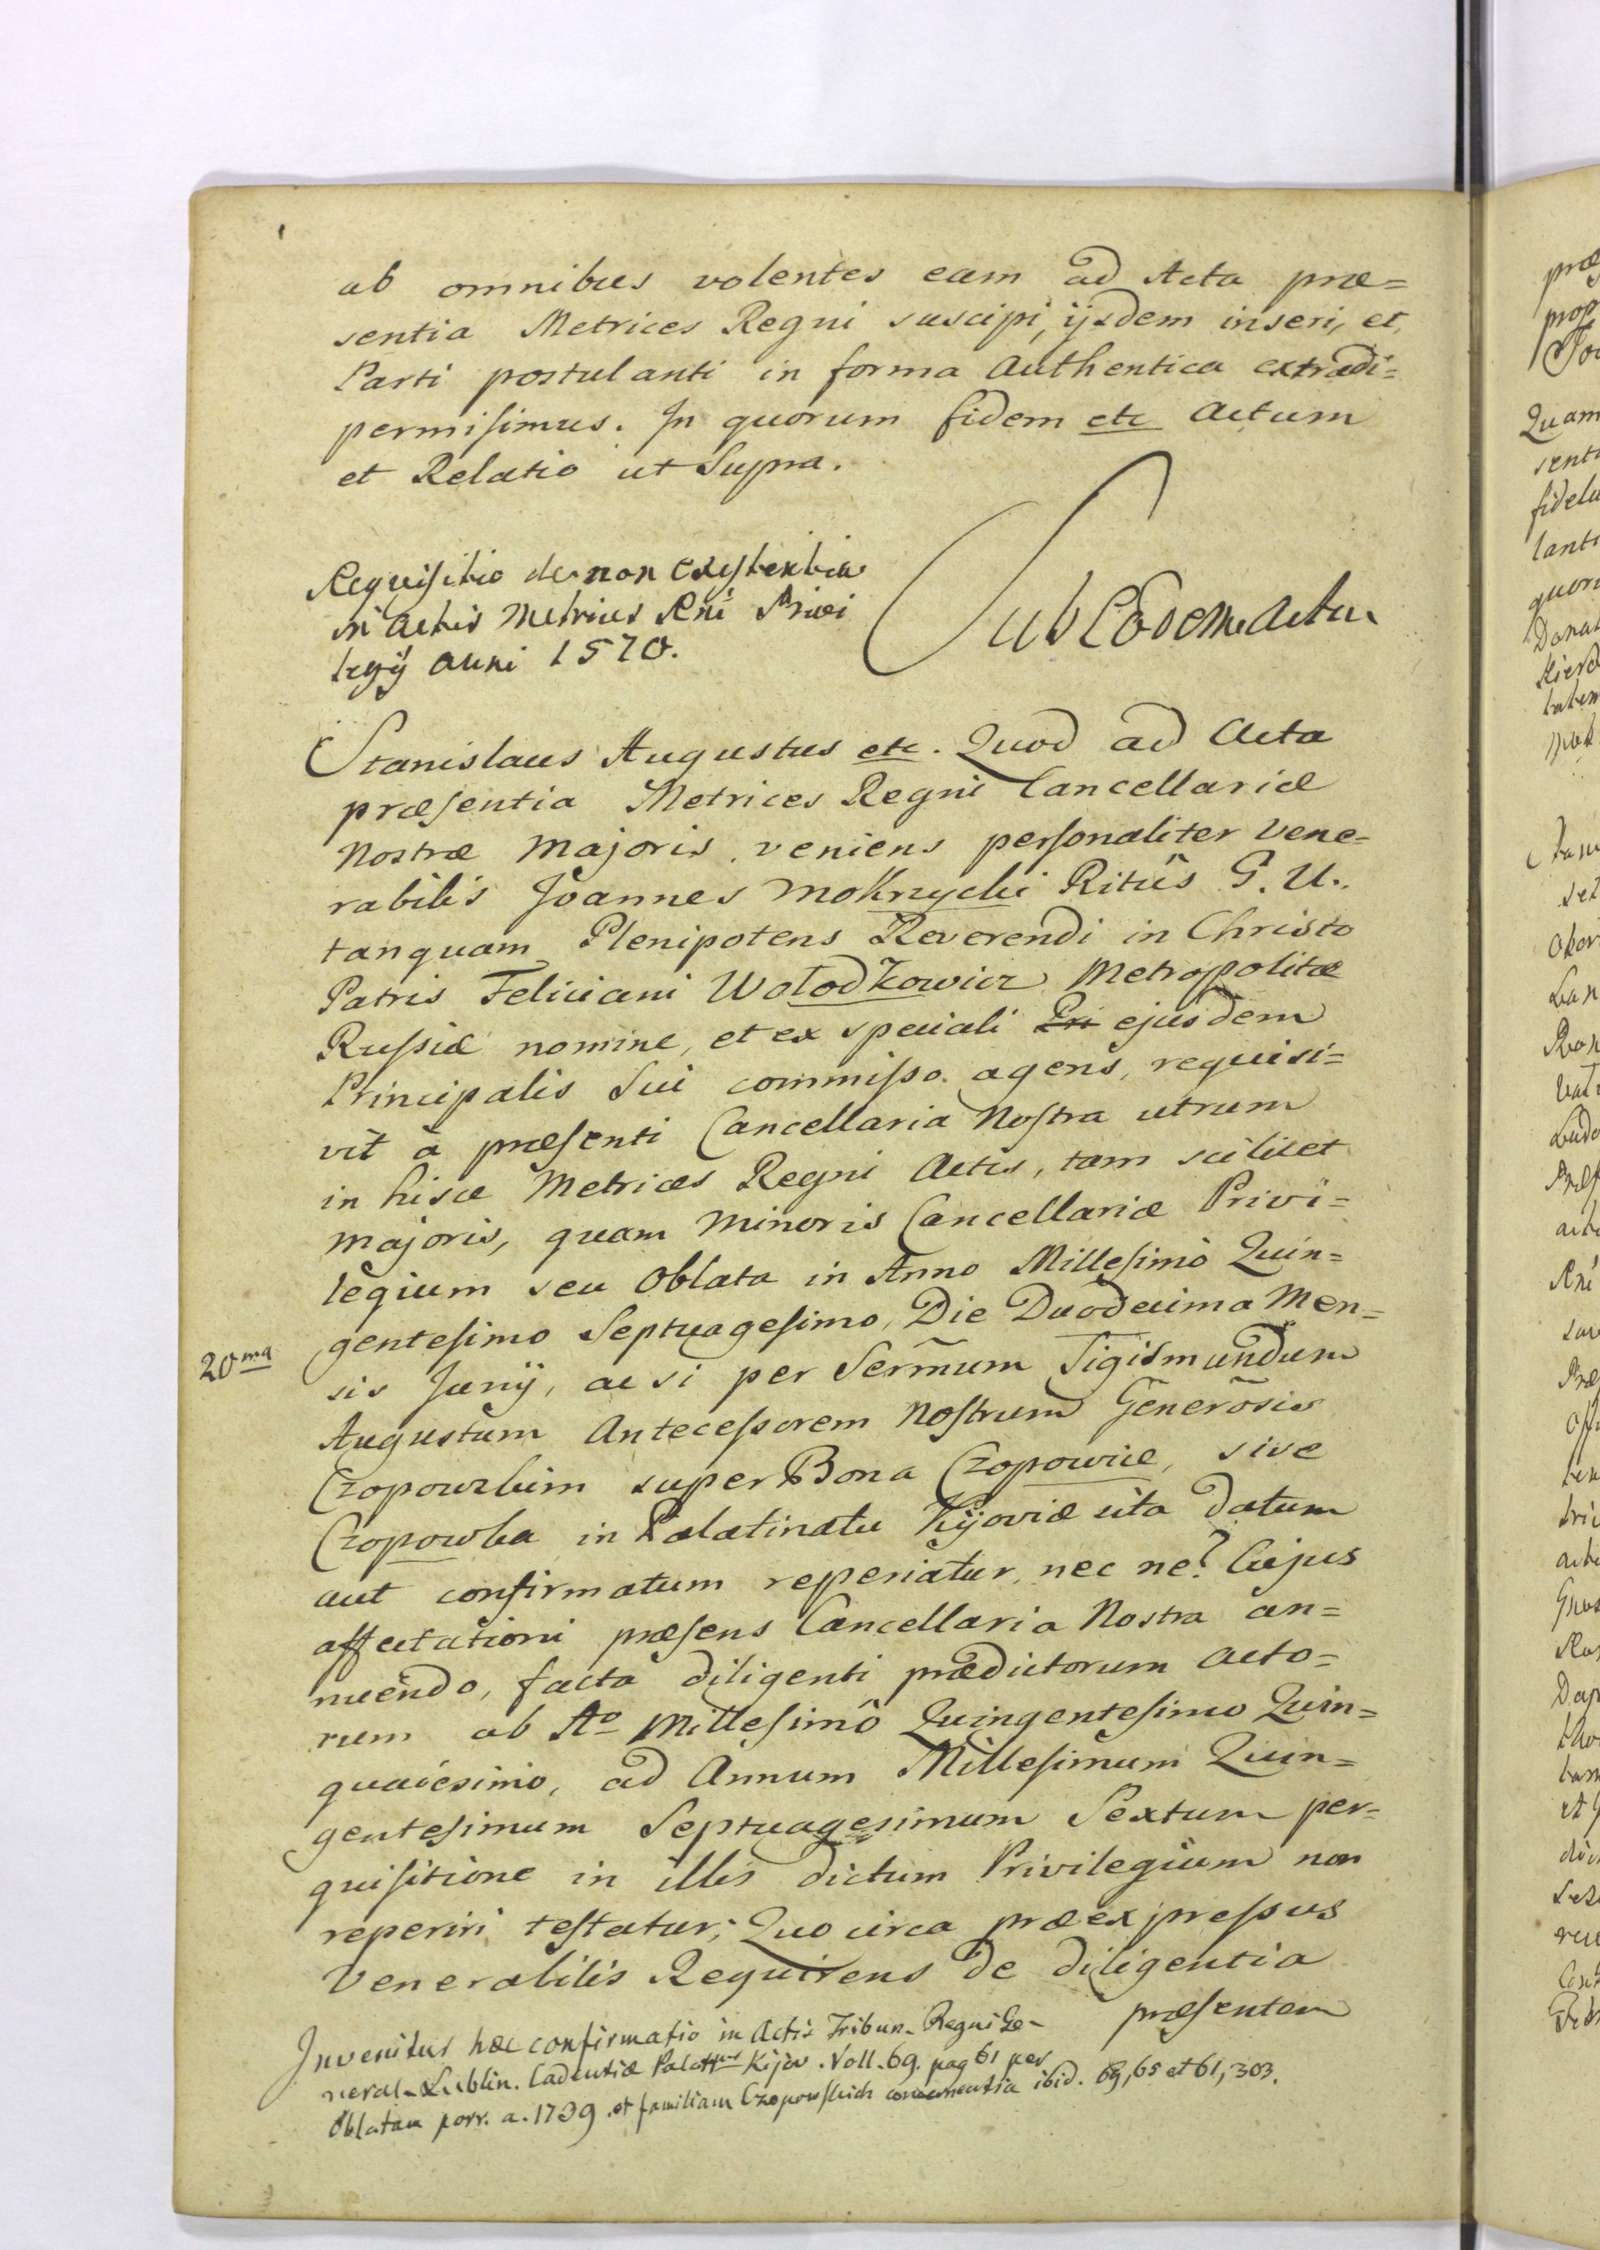 ab omnibus volentes eam ad Acta præ=
sentia Metrices Regni suscipi, ijsdem inseri, et
Parti postulanti in forma Authentica extradi=
permisimus. In quorum fidem etc Actum
et Relatio ut Supra.
Requisitio de non existentia
in Actis Metrices Rni Privi
legij anni 1570.
Sub Eodem Actu
Stanislaus Augustus etc. Quod ad Acta
præsentia Metrices Regni Cancellariæ
Nostræ Majoris veniens personaliter Vene=
rabilis Joannes Mokrzycki Ritûs G. U.
tanquam Plenipotens Reverendi in Christo
Patris Feliciani Wołodkowicz Metropolitæ
Russiæ nomine, et ex speciali Pri ejusdem
Principalis Sui commisso agens, requisi=
vit à præsenti Cancellaria Nostra utrum
in hisce Metrices Regni Actis, tam scilicet
Majoris, quam Minoris Cancellariæ Privi=
legium seu Oblata in Anno Millesimô Quin=
gentesimo Septuagesimo, Die Duodecima Men=
20ma
sis Junij, ac si per Serm̃um Sigismundum
Augustum Antecessorem Nostrum Generõsis
Czopowskim super Bona Czopowice, sive
Czopowka in Palatinatu Kijoviæ sita datum
aut confirmatum reperiatur, nec ne? Cujus
affectationi præsens Cancellaria Nostra an=
nuendo, facta diligenti prædictorum Acto=
rum ab Ao Millesimô Quingentesimo Quin=
quaiesimo, ad Annum Millesimum Quin=
gentesimum Septuagesimum Sextum per=
quisitione in illis dictum Privilegium non
reperiri testatur; Quo circa præexpressus
Venerabilis Requirens de diligentia
præsentem
Invenitur hæc confirmatio in Actis Tribun. Regni Ge-
neral. Lublin. Cadentiæ Palattus Kijov. Voll. 69. pag 61 per
Oblatam porr. a. 1739. et familiam Czopowskich concernentia ibid. 69, 65 et 61, 303.